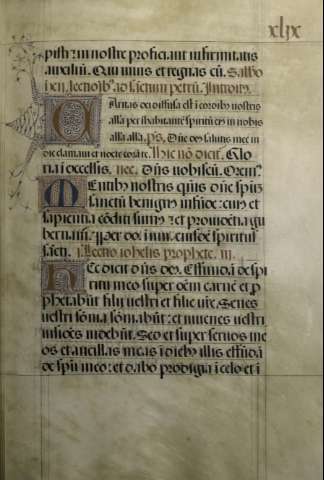 xlix
pisti: in nostre proficiant infirmitatis
auxiliū. Qui uiuis et regnas cū. Sabbō
i xii. lectioīb' ad sanctum petrū. Introitꝰ.
Caritas dei diffusa est i cordib' nostris
alla. per ihabitantē spiritū eiꝰ in nobis
alla alla. ps. Dñe deꝰ salutis mee in
die clamaui et nocte corā te. Hic nō dicit. Glo
ria i excelsis. nec. Dñs uobiscū. Oremꝰ.
Mentibꝰ nostris qꝰs dñe spiri
sanctū benignꝰ infūde: cuiꝰ et
sapientia cōditi sumꝰ et prouidētia gu
bernamur. Per dñm. in unit. eiusdē spiritus
sācti. Lectio iohelis prophete. iii.
Hec dicit dñs deꝰ. Effundā de spi
ritu meo super oēm carnē et p
phetabūt filij uestri et filie ur̄e. Senes
uestri sōnia sōniabūt: et iuuenes uestri
uisiōes uidebūt. Sed et super seruos me
os et ancillas meas i diebꝰ illis effūdā
de spū meo: et dabo prodigia i celo et i